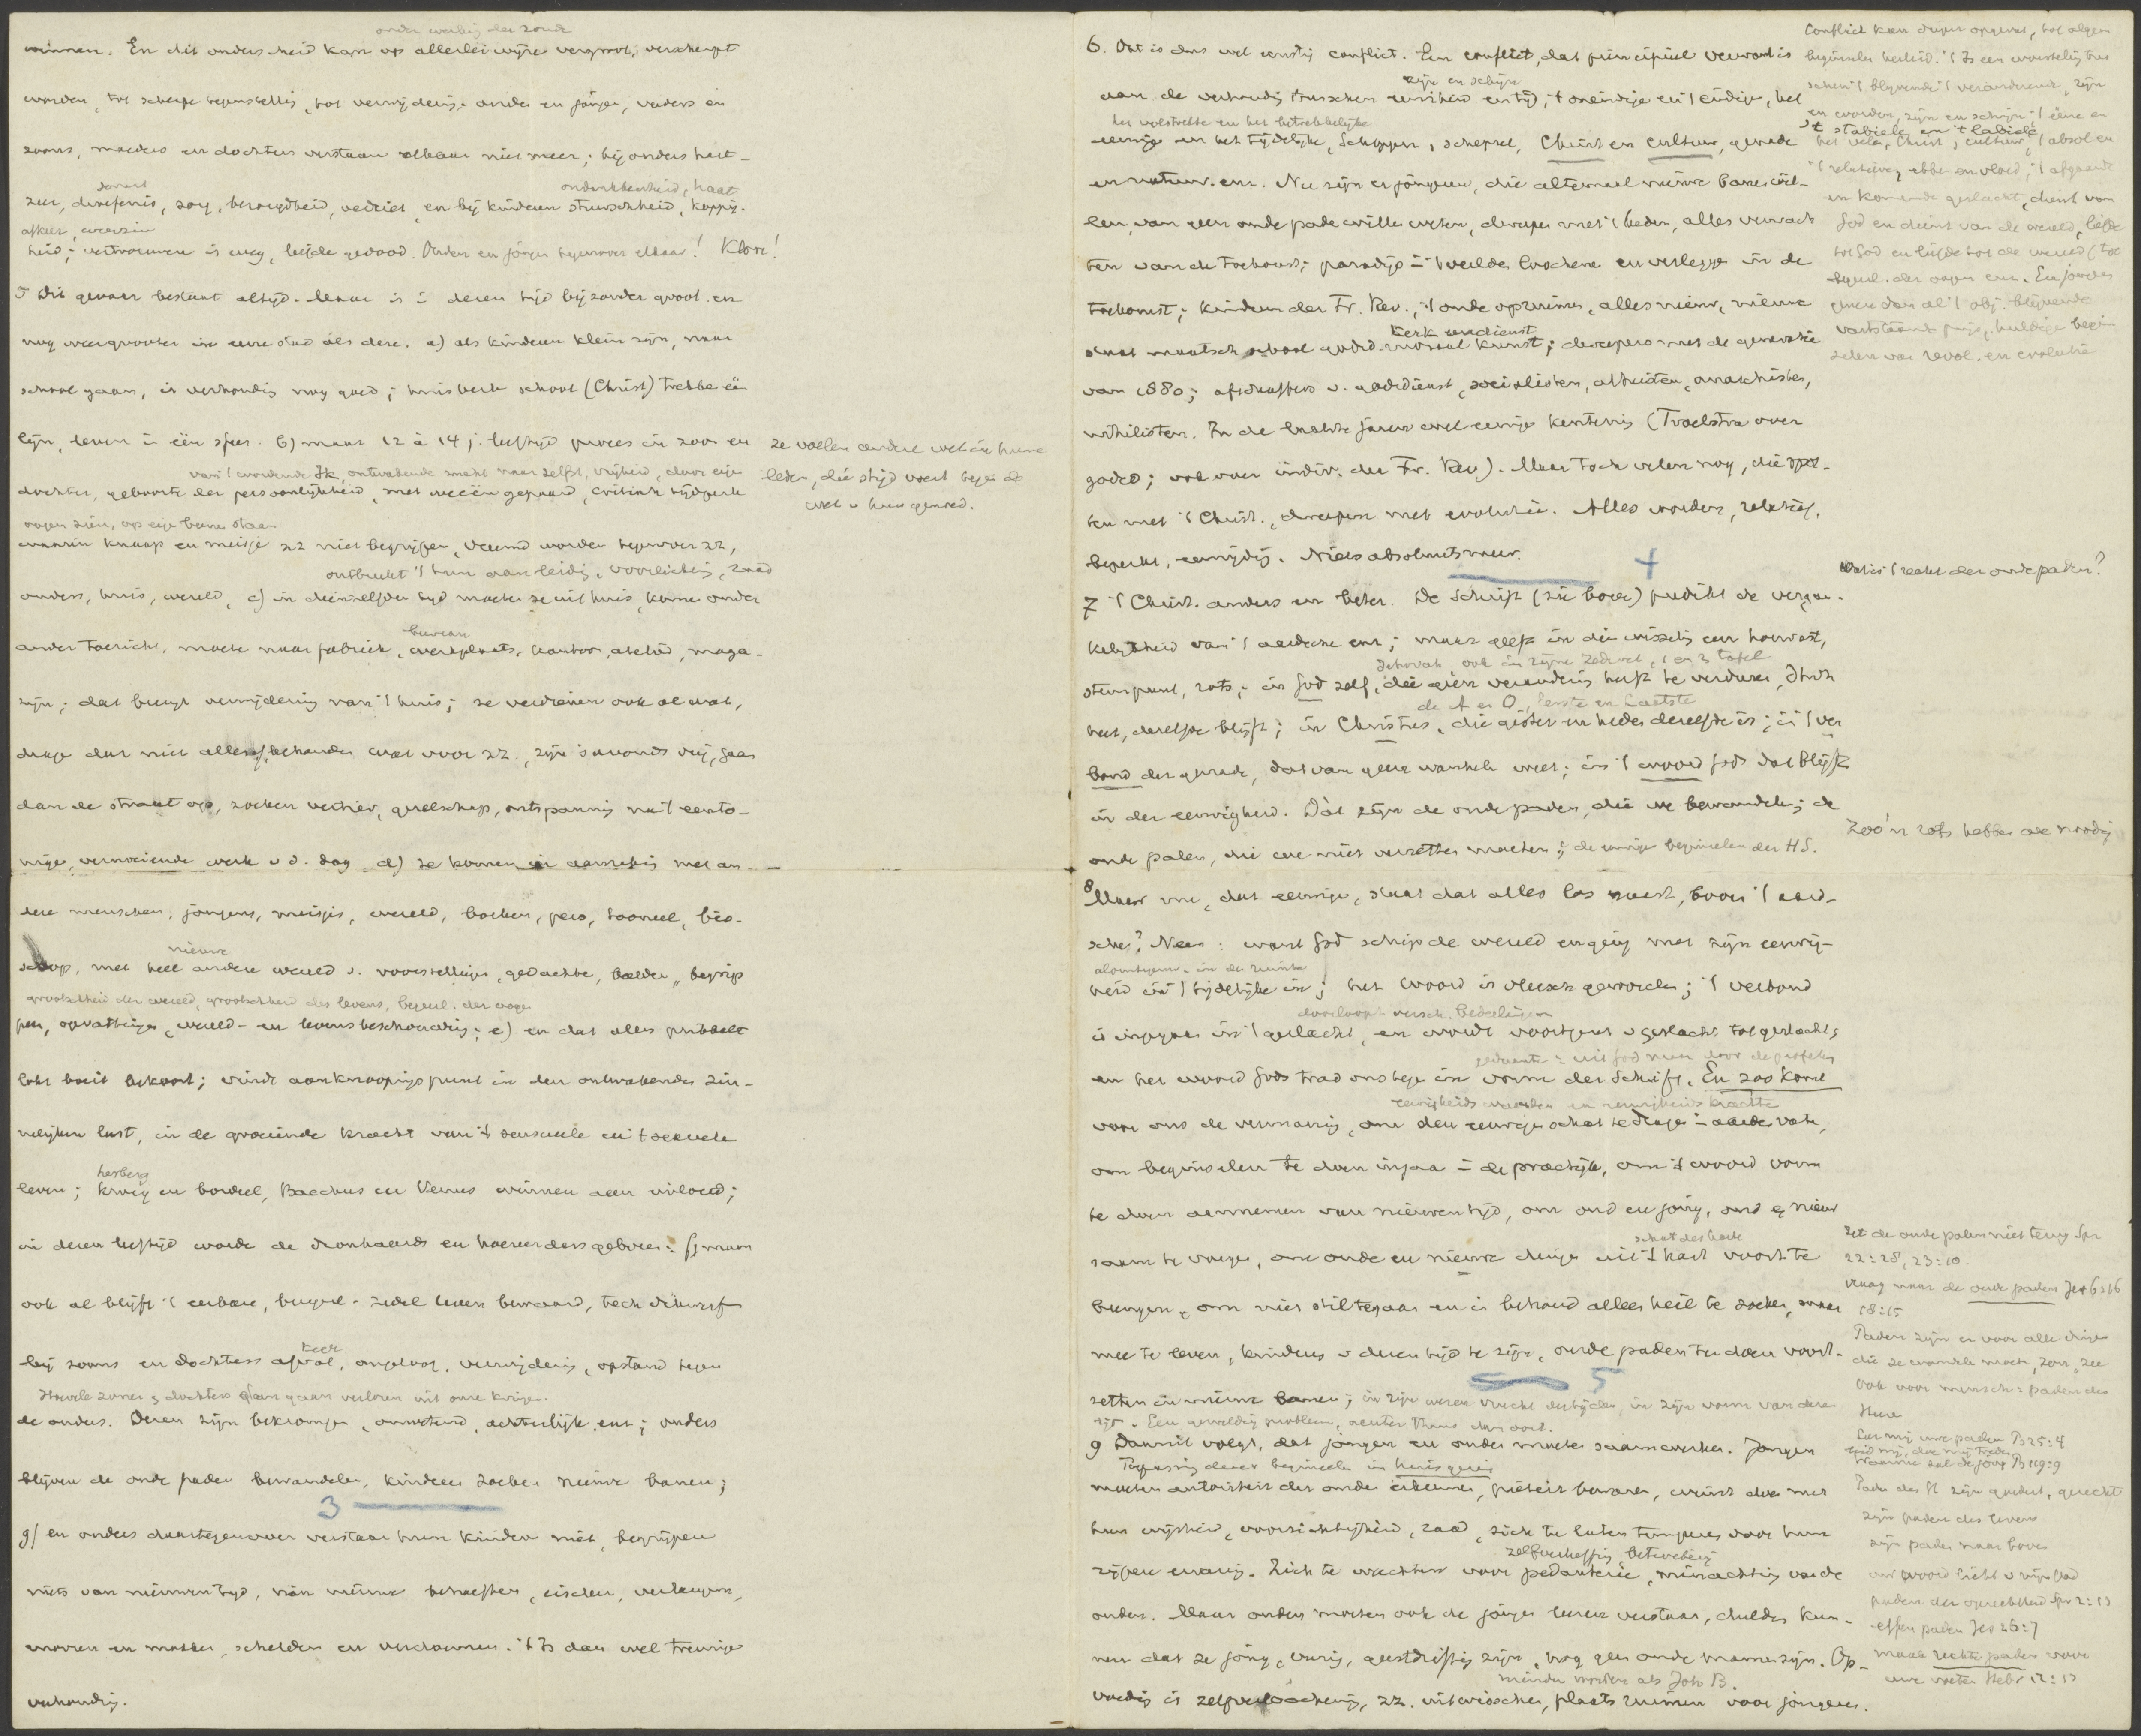 onder werking der zonde
winnen. En dit onderscheid kan op allerlei wijze vergroot, verscherpt
worden, tot scherpe tegenstelling, tot vervreemding. ouders en jonge, vaders en
zoons, moeders en dochters verstaan elkaar niet meer; bij ouders hart-
ondankbaarheid, haat
zeer, droefenis, zorg, bezorgdheid, verdriet, en bij kinderen stuurschheid, koppig-
afkeer, weerzin
heid; vertrouwen is weg, liefde gedood. Ouders en jongen tegenover elkaar! Kloof!
5 Dit gevaar bestaat altijd. Maar is in dezen tijd bijzonder groot. en
nog veel grooter in eene stad als deze. a) als kinderen klein zijn, naar
school gaan, is verhouding nog goed; huis kerk school (Christ) trekken één
lijn, leven in één sfeer. b) maar 12 à 14 j. leeftijd proces in zoon en
ze voelen andere wet in hunne
leden, die strijd voert tegen de
wet v hun gemoed.
van 't wordende Ik, ontwakende zucht naar zelfst, vrijheid, door eigen
dochter, geboorte der persoonlijkheid, met weeën gepaard, critieke tijdperk
oogen zien, op eigen beenen staan
waarin knaap en meisje zz niet begrijpen, vreemd worden tegenover zz,
ontbreekt 't hun aan leiding, voorlichting, raad
ouders, huis, wereld, c) in dienzelfden tijd moeten ze uit huis, komen onder
bureau
ander toezicht, moeten naar fabriek, werkplaats, kantoor, atelier, maga-
zijn; dat brengt vervreemding van 't huis; ze verdienen ook al wat,
dragen dat niet alles af, behouden wat voor zz, zijn 's avonds vrij, gaan
dan de straat op, zoeken vertier, gezelschap, ontspanning na 't eento-
nige, vermoeiende werk v d. dag d) ze komen in aanraking met an-
dere menschen, jongens, meisjes, wereld, boeken, pers, tooneel, bio-
nieuwe
scoop, met heel andere wereld v. voorstellingen, gedachten, beelden, begrip
grootschheid der wereld, grootschheid des levens, begeerl. der oogen
pen, opvattingen, wereld- en levensbeschouwing; e) en dat alles prikkelt
lokt boeit bekoort; vindt aanknoopingspunt in den ontwakenden zin-
nelijken lust, in de groeiende kracht van 't sensueele en 't sexueele
herberg
leven; kroeg en bordeel, Bacchus en Venus winnen aan invloed;
in dezen leeftijd worden de dronkaards en hoereerders geboren: f) maar
ook al blijft 't eerbare, burgerl- zedel leven bewaard, toch dikwerf
keer
bij zoons en dochters afval, ongeloof, vervreemding, opstand tegen
Hoevele zonen en dochters gaan verloren uit onze kringen.
de ouders. Dezen zijn bekrompen, onwetend, achterlijk enz; ouders
blijven de oude paden bewandelen, kinderen zoeken nieuwe banen;
3
g) en ouders daartegenover verstaan hun kinderen niet, begrijpen
niets van nieuwen tijd, van nieuwe behoeften, eischen, verlangens,
morren en mokken, schelden en verdoemen. 't Is dan wel treurige
verhouding.
6. Dat is dus wel ernstig conflict. Een conflict, dat principieel verwant is
zijn en schijn
aan de verhouding tusschen eeuwigheid en tijd, 't oneindige en 't eindige, het
het volstrekte en het betrekkelijke
eeuwige en het tijdelijke, Schepper, schepsel, Christ en cultuur, genade
en natuur. enz. Nu zijn er jongeren, die altemaal nieuwe banen wil-
len, van geen oude paden willen weten, dweepen met 't heden, alles verwach
ten van de toekomst; paradijs in 't verleden loochenen en verleggen in de
toekomst; kinderen der Fr. Rev., 't oude opruimen, alles nieuw, nieuwe
kerk eeredienst
staat maatsch school godsd. moraal kunst; dweepers met de generatie
van 1880; afschaffers v. godsdienst, socialisten, atheïsten, anarchisten,
nihilisten. In de laatste jaren wel eenige kentering (Troelstra over
godsd; ook over individ. der Fr. Rev). Maar toch velen nog, die spot-
ten met 't Christ., dweepen met evolutie. Alles worden, relatief,
beperkt, eenzijdig. Niets absoluuts meer.
4
Conflict kan dieper opgevat, tot algem
beginselen herleid. 't Is een worsteling tus
schen 't blijvende 't veranderende, zijn
en worden, zijn en schijn, 't ééne en
't stabiele en 't labiele
het vele, Christ, cultuur, 't absol en
't relatieve, ebbe en vloed, 't afgaande
en komende geslacht, dienst van
God en dienst van de wereld, liefde
tot God en liefde tot de wereld (tot
begeerl. der oogen enz.
Wat is 't recht der oude paden?
7 't Christ. anders en beter. De Schrift (zie boven) predikt de vergan-
kelijkheid van 't aardsche enz; maar geeft in die wisseling een houvast,
Jehovah, ook in zijne zedewet, 1 en 2 tafel
steunpunt, rots; in God zelf, die geen verandering heeft te verduren,
de A en O, eerste en Laatste
heet, dezelfde blijft; in Christus, die gisteren en heden dezelfde is; in 't ver
bond der genade, dat van geen wankelen weet; in 't woord Gods dat blijft
in der eeuwigheid. Dàt zijn de oude paden, die we bewandelen; de
Zoo'n rots hebben we noodig
oude palen, die we niet verzetten mogen; de eeuwige beginselen der HS.
8 Maar nu, dat eeuwige, staat dat alles los naast, boven 't aard-
sche? Neen: want God schiep de wereld en ging met zijn eeuwig-
alomtegenw. in de ruimte
heid in 't tijdelijke in; het woord is vleesch geworden; 't verbond
doorloopt versch. bedeelingen
is ingegaan in 't geslacht, en wordt voortgezet v geslacht tot geslacht;
en het woord Gods trad ons tegen in vorm der Schrift. En zoo komt
eeuwigheids waarden en eeuwigheids krachten
voor ons de vermaning, om den eeuwigen schat te dragen in aarden vaten,
om beginselen te doen ingaan in de practijk, om 't woord vorm
te doen aannemen van nieuwen tijd, om oud en jong, oud en nieuw
schat des harten
saam te voegen, om oude en nieuwe dingen uit 't hart voort te
brengen, om niet stil te gaan en in behoud alleen heil te zoeken, maar
mee te leven, kinderen v dezen tijd te zijn, oude paden te doen voort-
5
zetten in nieuwe banen;
tijd. Een geweldig probleem, acuter thans dan ooit.
Zet de oude palen niet terug Spr
22:28, 23:10.
Vraag naar de oude paden Jer 6:16
18:15
Paden zijn er voor alle dingen
die ze wandelen moeten, zon, zee
Ook voor mensch: paden des
Heere
Leer mij uwe paden Ps 25:4
Waarmee zal de jong Ps 119:9
Paden des H. zijn goedert, gerecht
zijn paden des levens
zijn paden naar boven
uw woord licht v mijn pad
paden der oprechtheid Spr 2:13
effen paden Jes 26:7
maak rechte paden voor
uwe voeten Hebr 12:13
9 Daaruit volgt, dat jongen en ouden moeten saamwerken. Jongen
Toepassing dezer beginselen in huisgezin
moeten autoriteit der ouden erkennen, piëteit bewaren, winst doen met
hun wijsheid, voorzichtigheid, raad, zich te laten temperen door hun
zelfverheffing betweterij
rijpere ervaring. Zich te wachten voor pedanterie, minachting van de
ouden. Maar ouden moeten ook de jongen leeren verstaan, dulden kun-
nen dat ze jong, vurig, geestdriftig zijn, nog geen oude mannen zijn. Op-
minder worden als Joh B.
voeding is zelfverloochening, zz. uitwisschen, plaats ruimen voor jongeren.